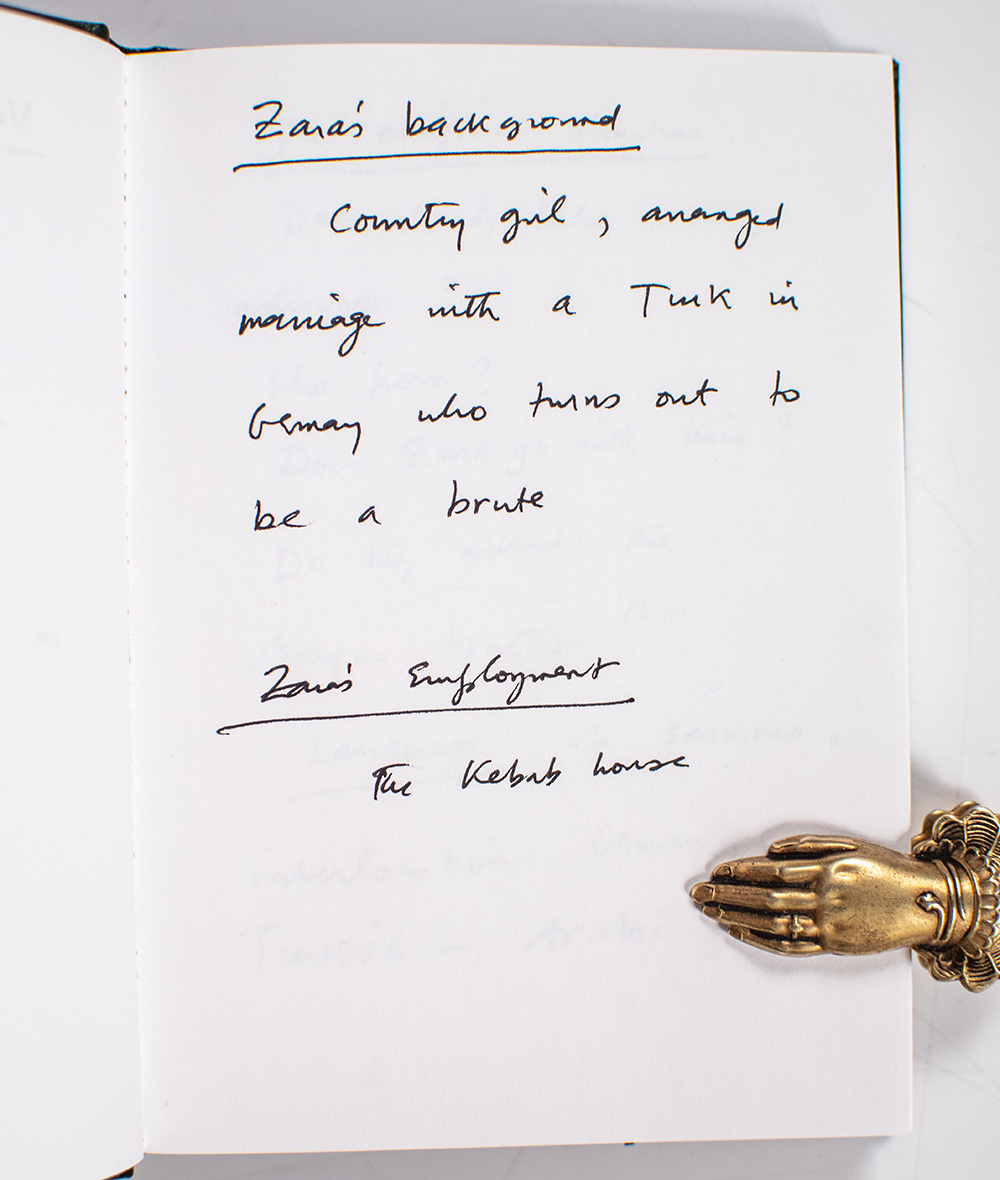 Zara's background
Country girl, arranged
marriage with a Turk in
Germany who turns out to
be a brute
Zara's Employment
The Kebab house